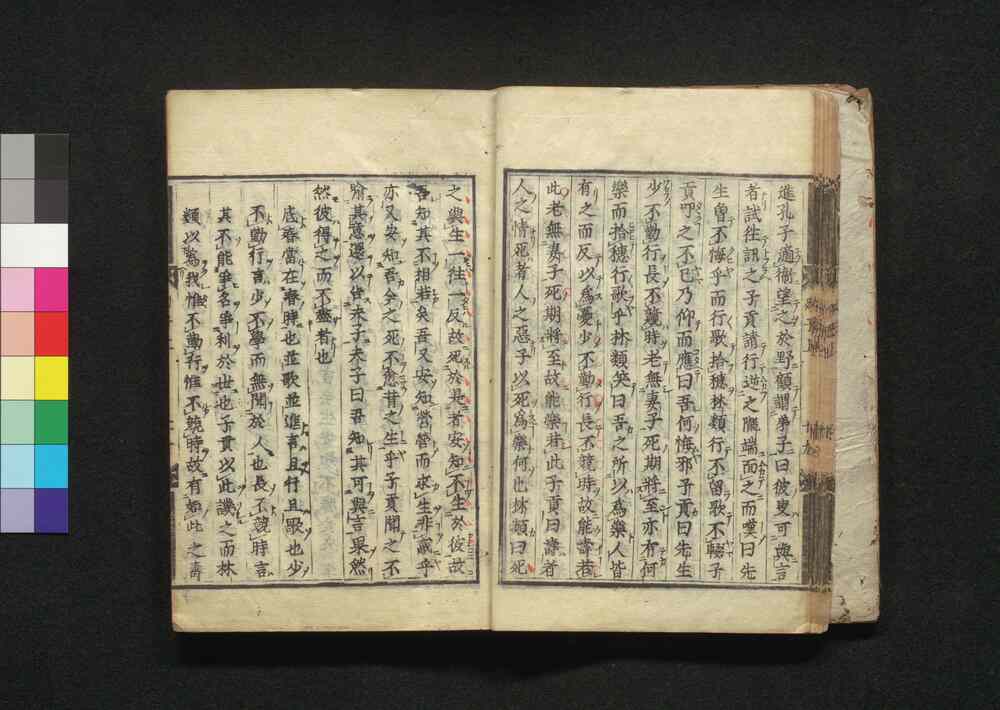 進孔子適衞望之於野顧謂弟子曰彼叟可與言
者試徃訊之子貢請行逆之隴端而之而嘆曰先
生曽不悔乎而行歌拾穗林類行不留歌不輟子
貢叩之不已乃仰而應曰吾何悔邪子貢曰先生
少不勤行長不競時老無妻子死期將至亦有何
樂而拾穗行歌乎林類笑曰吾之所以為樂人皆
有之而反以為憂少不勤行長不競時故能壽若
此老無妻子死期將至故能樂若此子貢曰壽者
人之情死者人之惡子以死為樂何也林類曰死
之與生一徃一反故死於是者安知不生於彼故
吾知其不相若矣吾又安知營營而求生非惑乎
亦又安知吾今之死不愈昔之生乎子貢聞之不
喻其意還以告夫子夫子曰吾知其可與言果然
然彼得之而不盡者也
底春當在春時也並歌並進言且行且歌也少
不勤行言少不學而無聞於人也長不競時言
其不能爭名爭利於世也子貢以此譏之而林
類以為我惟不勤行惟不競時故有如此之壽